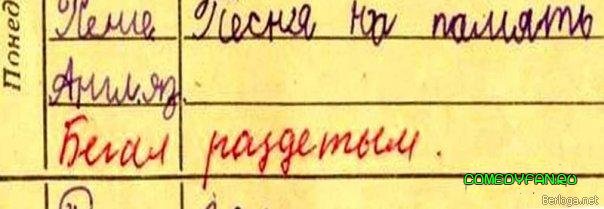 Понед
Пение Песня на память
Англ.яз.
Бегал раздетым.
COMEDYFAN.RO
Berloga.net